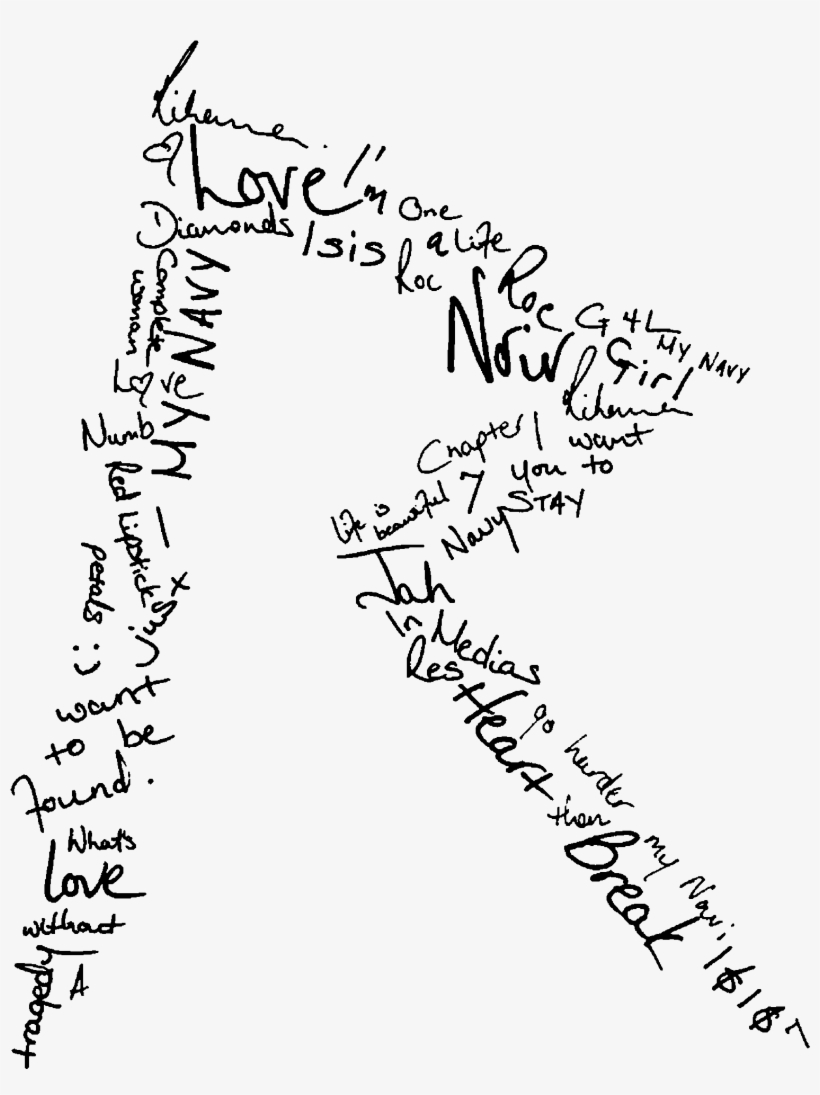 Rihanna
Love I'm
One
a Life
Diamonds
Isis
Roc
Roc
Complete
woman
MY NAVY
Noir
G4L
MY NAVY
Girl
Rihanna
Love
Numb
Chapter
7
I want
you to
STAY
Life is
beautiful
Navy
Red Lipstick
petals :)
Jah
In Medias
Res
I
want
to be
found.
Heart
go harder
than
my Navi
Break
What's
love
without
A
tragedy